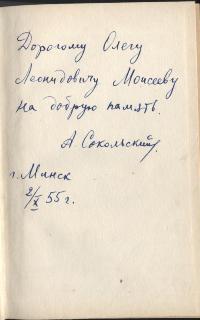 Дорогому Олегу
Леонидовичу Моисееву
на добрую память.
А Сокольский.
г. Минск
2/X 55 г.